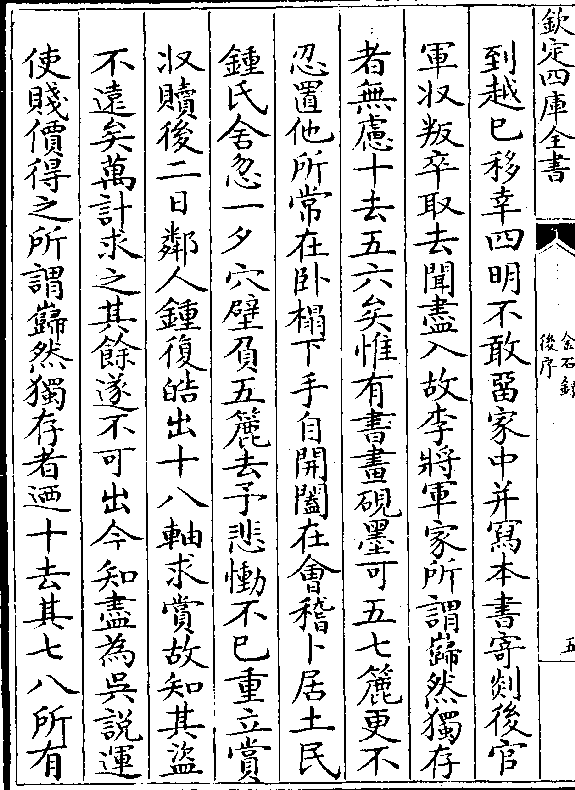 欽定四庫全書
金石錄
後序
五
到越已移幸四明不敢留家中并寫本書寄剡後官
軍収叛卒取去聞盡入故李將軍家所謂巋然獨存
者無慮十去五六矣惟有書畫硯墨可五七簏更不
忍置他所常在卧榻下手自開闔在會稽卜居土民
鍾氏舍忽一夕穴壁負五簏去予悲慟不已重立賞
収贖後二日鄰人鍾復皓出十八軸求賞故知其盜
不遠矣萬計求之其餘遂不可出今知盡為吳說運
使賤價得之所謂巋然獨存者廼十去其七八所有